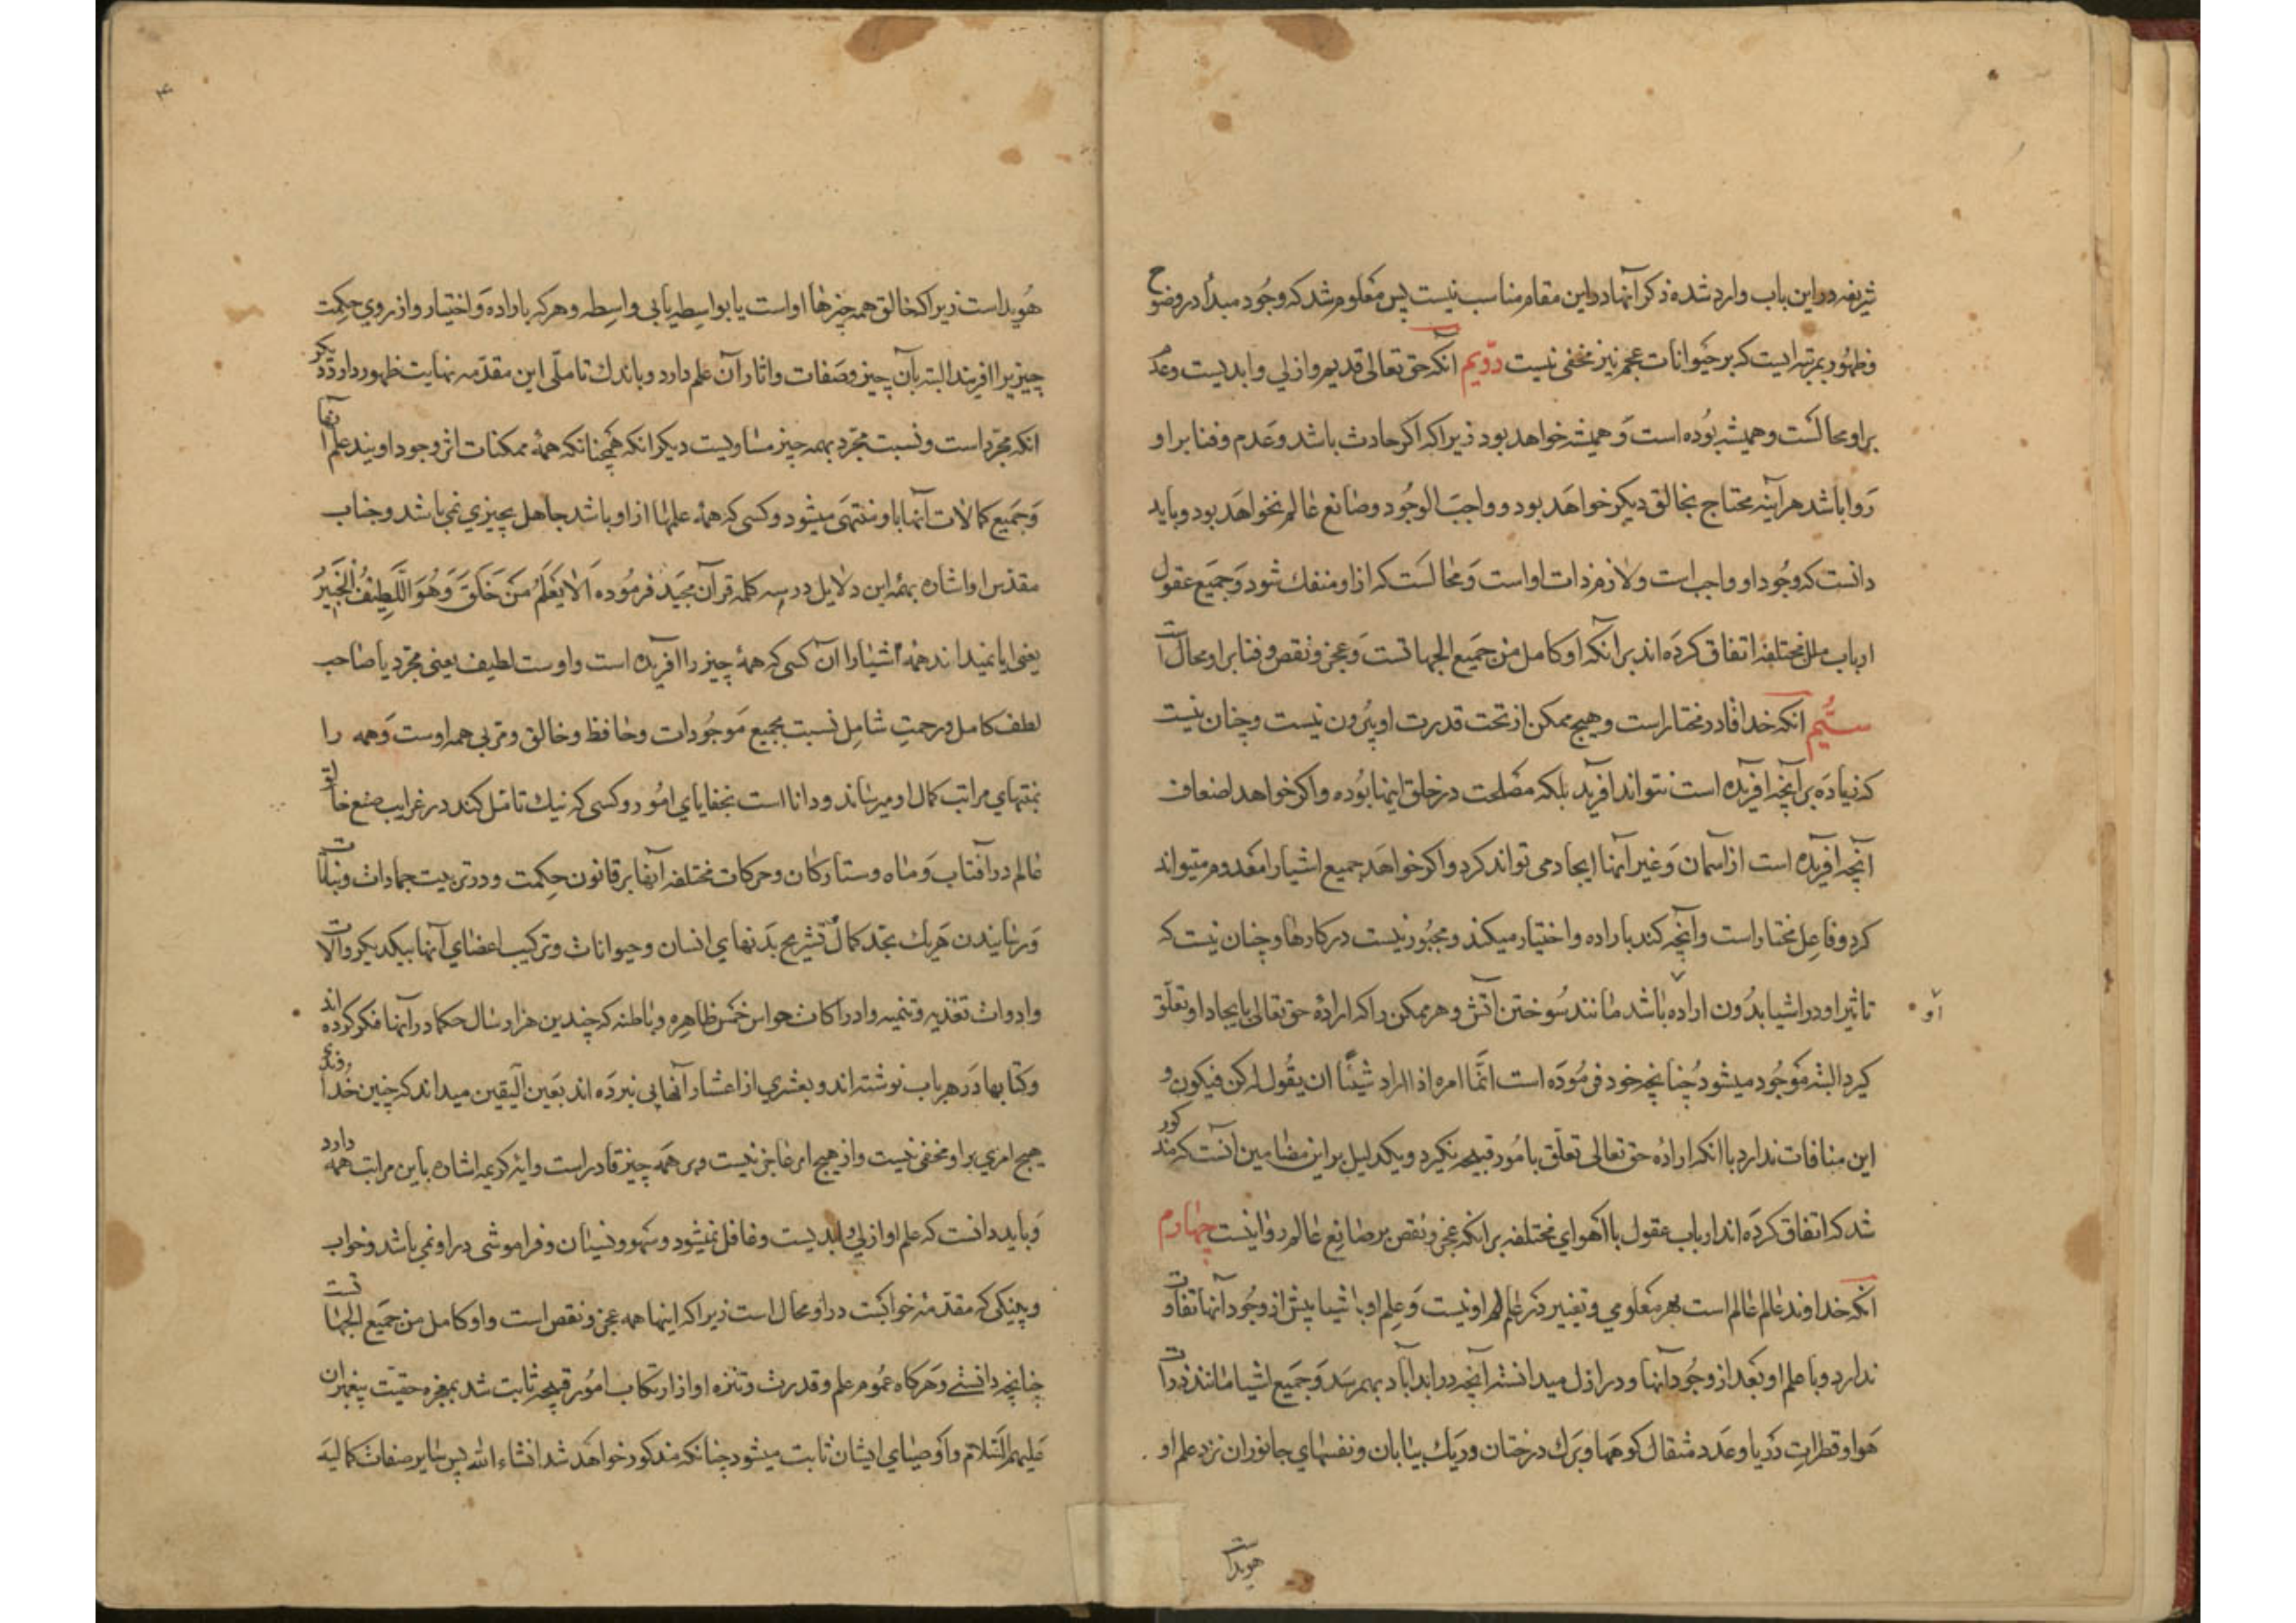 شریفه در این باب وارد شده ذکر آنها در این مقام مناسب نیست پس معلوم شد که وجود مبدأ در وضوح
و ظهور بمرتبه ایست که بر حیوانات عجم نیز مخفی نیست دویم آنکه حق تعالی قدیم و ازلی و ابدیست و عدم
بر او محالست و همیشه بوده است و همیشه خواهد بود زیرا که اگر حادث باشد و عدم و فنا بر او
روا باشد هر آینه محتاج بخالق دیگر خواهد بود و واجب الوجود و صانع عالم نخواهد بود و باید
دانست که وجود او واجب است و لازم ذات او است و محالست که از او منفک شود و جمیع عقول
ارباب ملل مختلفه اتفاق کرده اند بر آنکه او کامل من جمیع الجهاتست و عجز و نقص و فنا بر او محال است
سیُّم انکه خدا قادر مختار است و هیچ ممکن از تحت قدرت او بیرون نیست و چنان نیست
که زیاده بر آنچه افریده است نتواند آفرید بلکه مصلحت در خلق اینها بوده و اگر خواهد اضعاف
آنچه افریده است از اسمان و غیر آنها ایجاد می تواند کرد و اگر خواهد جمیع اشیا را معدوم میتواند
کرد و فاعل مختار است و آنچه کند باراده و اختیار میکند و مجبور نیست در کارها و چنان نیست که
تاثیر او در اشیا بدون اراده باشد مانند سوختن آتش و هر ممکن را که ارادهٔ حق تعالی بایجاد او تعلق
او
کیرد البته موجود میشود چنانچه خود فرموده است انّما امره اذا اراد شیئًا ان یقول له کن فیکون و
این منافات ندارد با انکه ارادهٔ حق تعالی تعلّق بامور قبیحه نکیرد و یکدلیل بر این مضامین آنست که مذکور
شد که اتفاق کرده اند ارباب عقول با اهوای مختلفه بر انکه عجز و نقص بر صانع عالم روا نیست چهارم
آنکه خداوند عالم عالم است بهر معلومی و تغییر در علم او نیست و علم او باشیا پیش از وجود آنها تفاوت
ندارد و با علم او بعد از وجود آنها و در ازل میدانسته آنچه در ابد آباد بهمرسد و جمیع اشیا مانند ذرات
هوا و قطرات دریا و عدد مثقال کوهها و برک درختان و ریک بیابان و نفسهای جانوران نزد علم او
هویداست
۴
هویداست زیرا که خالق همه چیزها او است یا بواسطه یا بی واسطه و هر که باراده و اختیار و از روی حکمت
چیزیرا افریند البته بآن چیز و صفات و اثار آن علم دارد و باندک تاملّی این مقدّمه نهایت ظهور دارد دیکر
انکه مجرّد است و نسبت مجرّد بهمه چیز مساویست دیکر انکه همچنانکه همهٔ ممکنات اثر وجود اویند علم آنها
و جمیع کمالات آنها باو منتهی میشود و کسی که همهٔ علمها از او باشد جاهل بچیزی نمی باشد و جناب
مقدس او اشاره بهمهٔ این دلایل در سه کلمه قرآن مجید فرموده اَلا یَعْلَمُ مَنْ خَلَقَ وَ هُوَ اللَّطِیفُ الْخَبِیرُ
یعنی ایا نمیداند همهٔ اشیا را آن کسی که همهٔ چیز را آفریده است و اوست لطیف یعنی مجرّد یا صاحب
لطف کامل و رحمت شامل نسبت بجمیع موجودات و حافظ و خالق و مربی همه اوست و همه را
بمنتهای مراتب کمال او میرساند و دانا است بخفایای امور و کسی که نیک تامل کند در غرایب صنع خالق
عالم در آفتاب و ماه و ستارکان و حرکات مختلفه آنها بر قانون حکمت و در تربیت جمادات و نباتات
و رسانیدن هر یک بحد کمال تشریح بدنهای انسان و حیوانات و ترکیب اعضای آنها بیکدیکر و آلات
و ادوات تغذیه و تنمیه و ادراکات حواس خمس ظاهره و باطنه که چندین هزار سال حکما در آنها فکر کرده اند
و کتابها در هر باب نوشته اند و بعشری از اعشار آنها پی نبرده اند بعین الیقین میداند که چنین خداوندی
هیچ امری بر او مخفی نیست و از هیچ امر عاجز نیست و بر همه چیز قادر است و ایه کریمه اشاره باین مراتب همه دارد
و باید دانست که علم او ازلی و ابدیست و غافل نمیشود و سهو و نسیان و فراموشی در او نمی باشد و خواب
و پینکی که مقدّمهٔ خوابست در او محال است زیرا که اینها همه عجز و نقص است و او کامل من جمیع الجهاتست
چنانچه دانستی و هرکاه عموم علم و قدرت و تنزه او از ارتکاب امور قبیحه ثابت شد بمعجزه حقیت پیغمبران
علیهم السّلام و اوصیای ایشان ثابت میشود چنانکه مذکور خواهد شد انشاء الله پس سایر صفات کمالیه